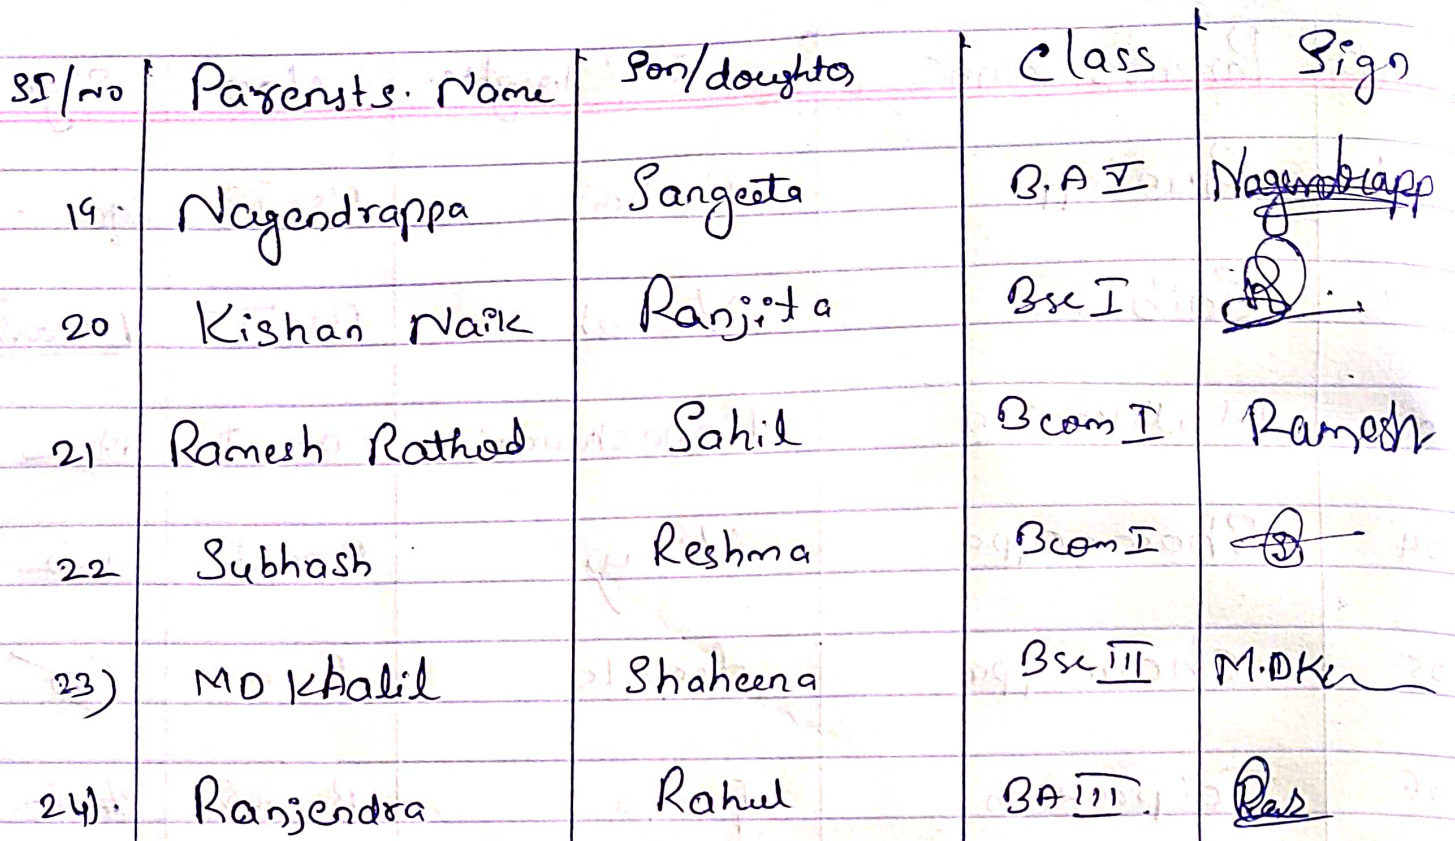 Sl/No Parensts. Name Son/doughter Class Sign
19. Nagendrappa Sangeeta B.A V Nagendrapp
20 Kishan Naik Ranjita Bsc I
21 Ramesh Rathod Sahil Bcom I Ramesh
22 Subhash Reshma Bcom I
23) MD Khalil Shaheena Bsc III M.DKh
24). Ranjendra Rahul BA III.